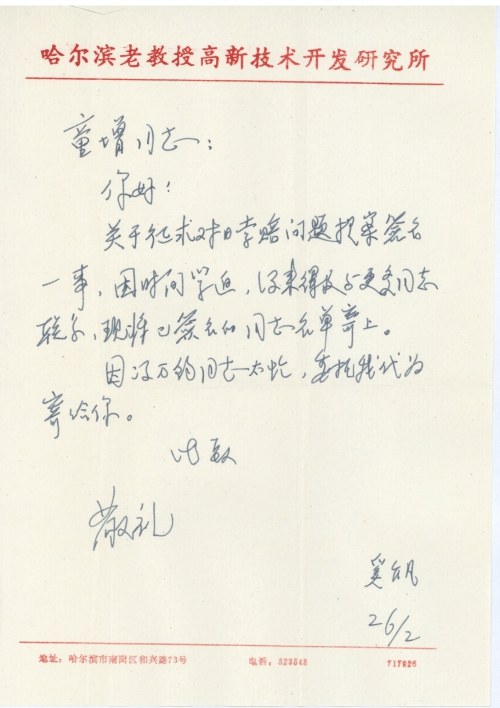 哈尔滨老教授高新技术开发研究所
童增同志：
你好！
关于征求对日索赔问题提案签名
一事，因时间紧迫，没来得及与更多同志
联系，现将已签名的同志名单寄上。
因冯万钧同志太忙，委托我代为
寄给你。
此致
敬礼
奚
26/2
地址：哈尔滨市南岗区和兴路73号
电话：323548
717926